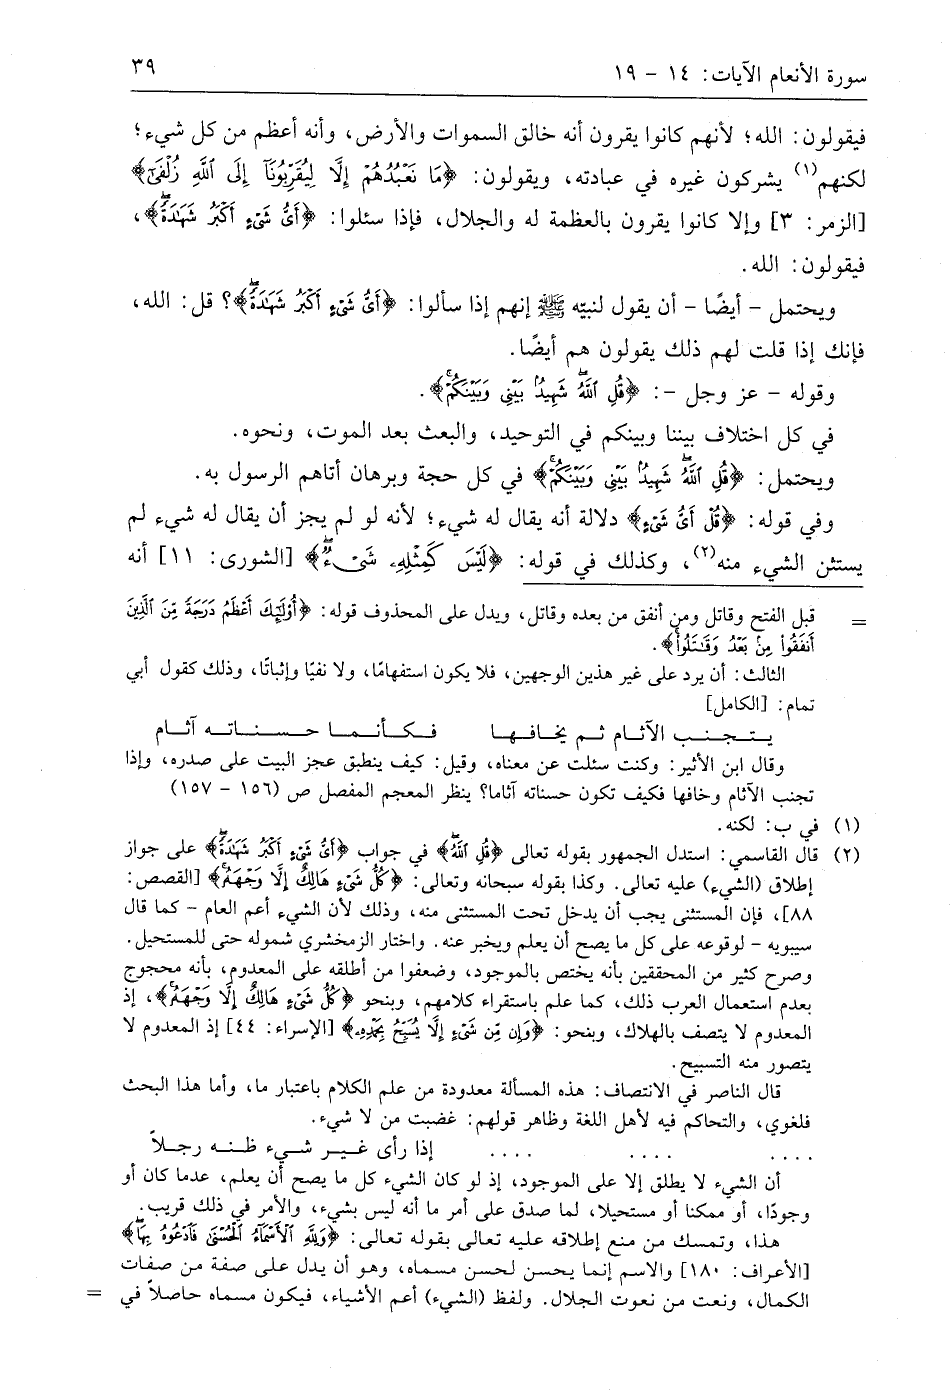 سورة الأنعام الآيات: ١٤ - ١٩ ٣٩
فيقولون: الله؛ لأنهم كانوا يقرون أنه خالق السموات والأرض، وأنه أعظم من كل شيء؛
لكنهم(١) يشركون غيره في عبادته، ويقولون: ﴿مَا نَعْبُدُهُمْ إِلَّا لِيُقَرِّبُونَآ إِلَى ٱللَّهِ زُلْفَىٰٓ﴾
[الزمر: ٣] وإلا كانوا يقرون بالعظمة له والجلال، فإذا سئلوا: ﴿أَىُّ شَىْءٍ أَكْبَرُ شَهَٰدَةًۖ﴾،
فيقولون: الله.
ويحتمل - أيضًا - أن يقول لنبيّه ﷺ إنهم إذا سألوا: ﴿أَىُّ شَىْءٍ أَكْبَرُ شَهَٰدَةًۖ﴾؟ قل: الله،
فإنك إذا قلت لهم ذلك يقولون هم أيضًا.
وقوله - عز وجل -: ﴿قُلِ ٱللَّهُۖ شَهِيدٌۢ بَيْنِى وَبَيْنَكُمْۚ﴾.
في كل اختلاف بيننا وبينكم في التوحيد، والبعث بعد الموت، ونحوه.
ويحتمل: ﴿قُلِ ٱللَّهُۖ شَهِيدٌۢ بَيْنِى وَبَيْنَكُمْۚ﴾ في كل حجة وبرهان أتاهم الرسول به.
وفي قوله: ﴿قُلْ أَىُّ شَىْءٍ﴾ دلالة أنه يقال له شيء؛ لأنه لو لم يجز أن يقال له شيء لم
يستثن الشيء منه(٢)، وكذلك في قوله: ﴿لَيْسَ كَمِثْلِهِۦ شَىْءٌۖ﴾ [الشورى: ١١] أنه
= قبل الفتح وقاتل ومن أنفق من بعده وقاتل، ويدل على المحذوف قوله: ﴿أُوْلَٰٓئِكَ أَعْظَمُ دَرَجَةً مِّنَ ٱلَّذِينَ
أَنفَقُواْ مِنۢ بَعْدُ وَقَٰتَلُواْۚ﴾.
الثالث: أن يرد على غير هذين الوجهين، فلا يكون استفهامًا، ولا نفيًا وإثباتًا، وذلك كقول أبي
تمام: [الكامل]
يتجنب الآثام ثم يخافها فكأنما حسناته آثام
وقال ابن الأثير: وكنت سئلت عن معناه، وقيل: كيف ينطبق عجز البيت على صدره، وإذا
تجنب الآثام وخافها فكيف تكون حسناته آثاما؟ ينظر المعجم المفصل ص (١٥٦ - ١٥٧)
(١) في ب: لكنه.
(٢) قال القاسمي: استدل الجمهور بقوله تعالى ﴿قُلِ ٱللَّهُۖ﴾ في جواب ﴿أَىُّ شَىْءٍ أَكْبَرُ شَهَٰدَةًۖ﴾ على جواز
إطلاق (الشيء) عليه تعالى. وكذا بقوله سبحانه وتعالى: ﴿كُلُّ شَىْءٍ هَالِكٌ إِلَّا وَجْهَهُۥۚ﴾ [القصص:
٨٨]، فإن المستثنى يجب أن يدخل تحت المستثنى منه، وذلك لأن الشيء أعم العام - كما قال
سيبويه - لوقوعه على كل ما يصح أن يعلم ويخبر عنه. واختار الزمخشري شموله حتى للمستحيل.
وصرح كثير من المحققين بأنه يختص بالموجود، وضعفوا من أطلقه على المعدوم، بأنه محجوج
بعدم استعمال العرب ذلك، كما علم باستقراء كلامهم، وبنحو ﴿كُلُّ شَىْءٍ هَالِكٌ إِلَّا وَجْهَهُۥۚ﴾، إذ
المعدوم لا يتصف بالهلاك، وبنحو: ﴿وَإِن مِّن شَىْءٍ إِلَّا يُسَبِّحُ بِحَمْدِهِۦ﴾ [الإسراء: ٤٤] إذ المعدوم لا
يتصور منه التسبيح.
قال الناصر في الانتصاف: هذه المسألة معدودة من علم الكلام باعتبار ما، وأما هذا البحث
فلغوي، والتحاكم فيه لأهل اللغة وظاهر قولهم: غضبت من لا شيء.
.... .... .... إذا رأى غير شيء ظنه رجلاً
أن الشيء لا يطلق إلا على الموجود، إذ لو كان الشيء كل ما يصح أن يعلم، عدما كان أو
وجودًا، أو ممكنا أو مستحيلا، لما صدق على أمر ما أنه ليس بشيء، والأمر في ذلك قريب.
هذا، وتمسك من منع إطلاقه عليه تعالى بقوله تعالى: ﴿وَلِلَّهِ ٱلْأَسْمَآءُ ٱلْحُسْنَىٰ فَٱدْعُوهُ بِهَاۖ﴾
[الأعراف: ١٨٠] والاسم إنما يحسن لحسن مسماه، وهو أن يدل على صفة من صفات
الكمال، ونعت من نعوت الجلال. ولفظ (الشيء) أعم الأشياء، فيكون مسماه حاصلاً في =